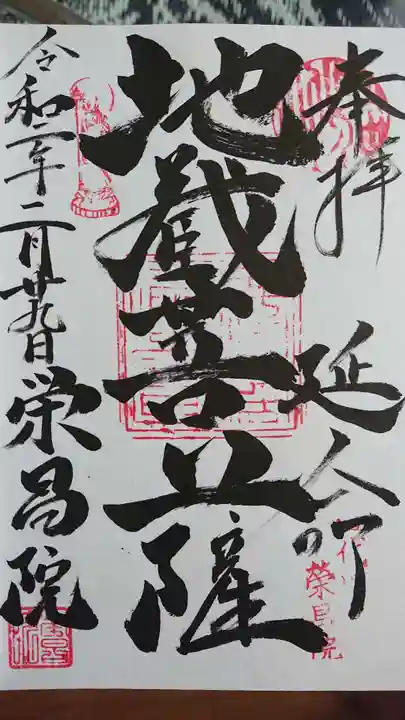 奉拝
延命
地蔵菩薩
令和二年二月廿九日
栄昌院
榮昌院